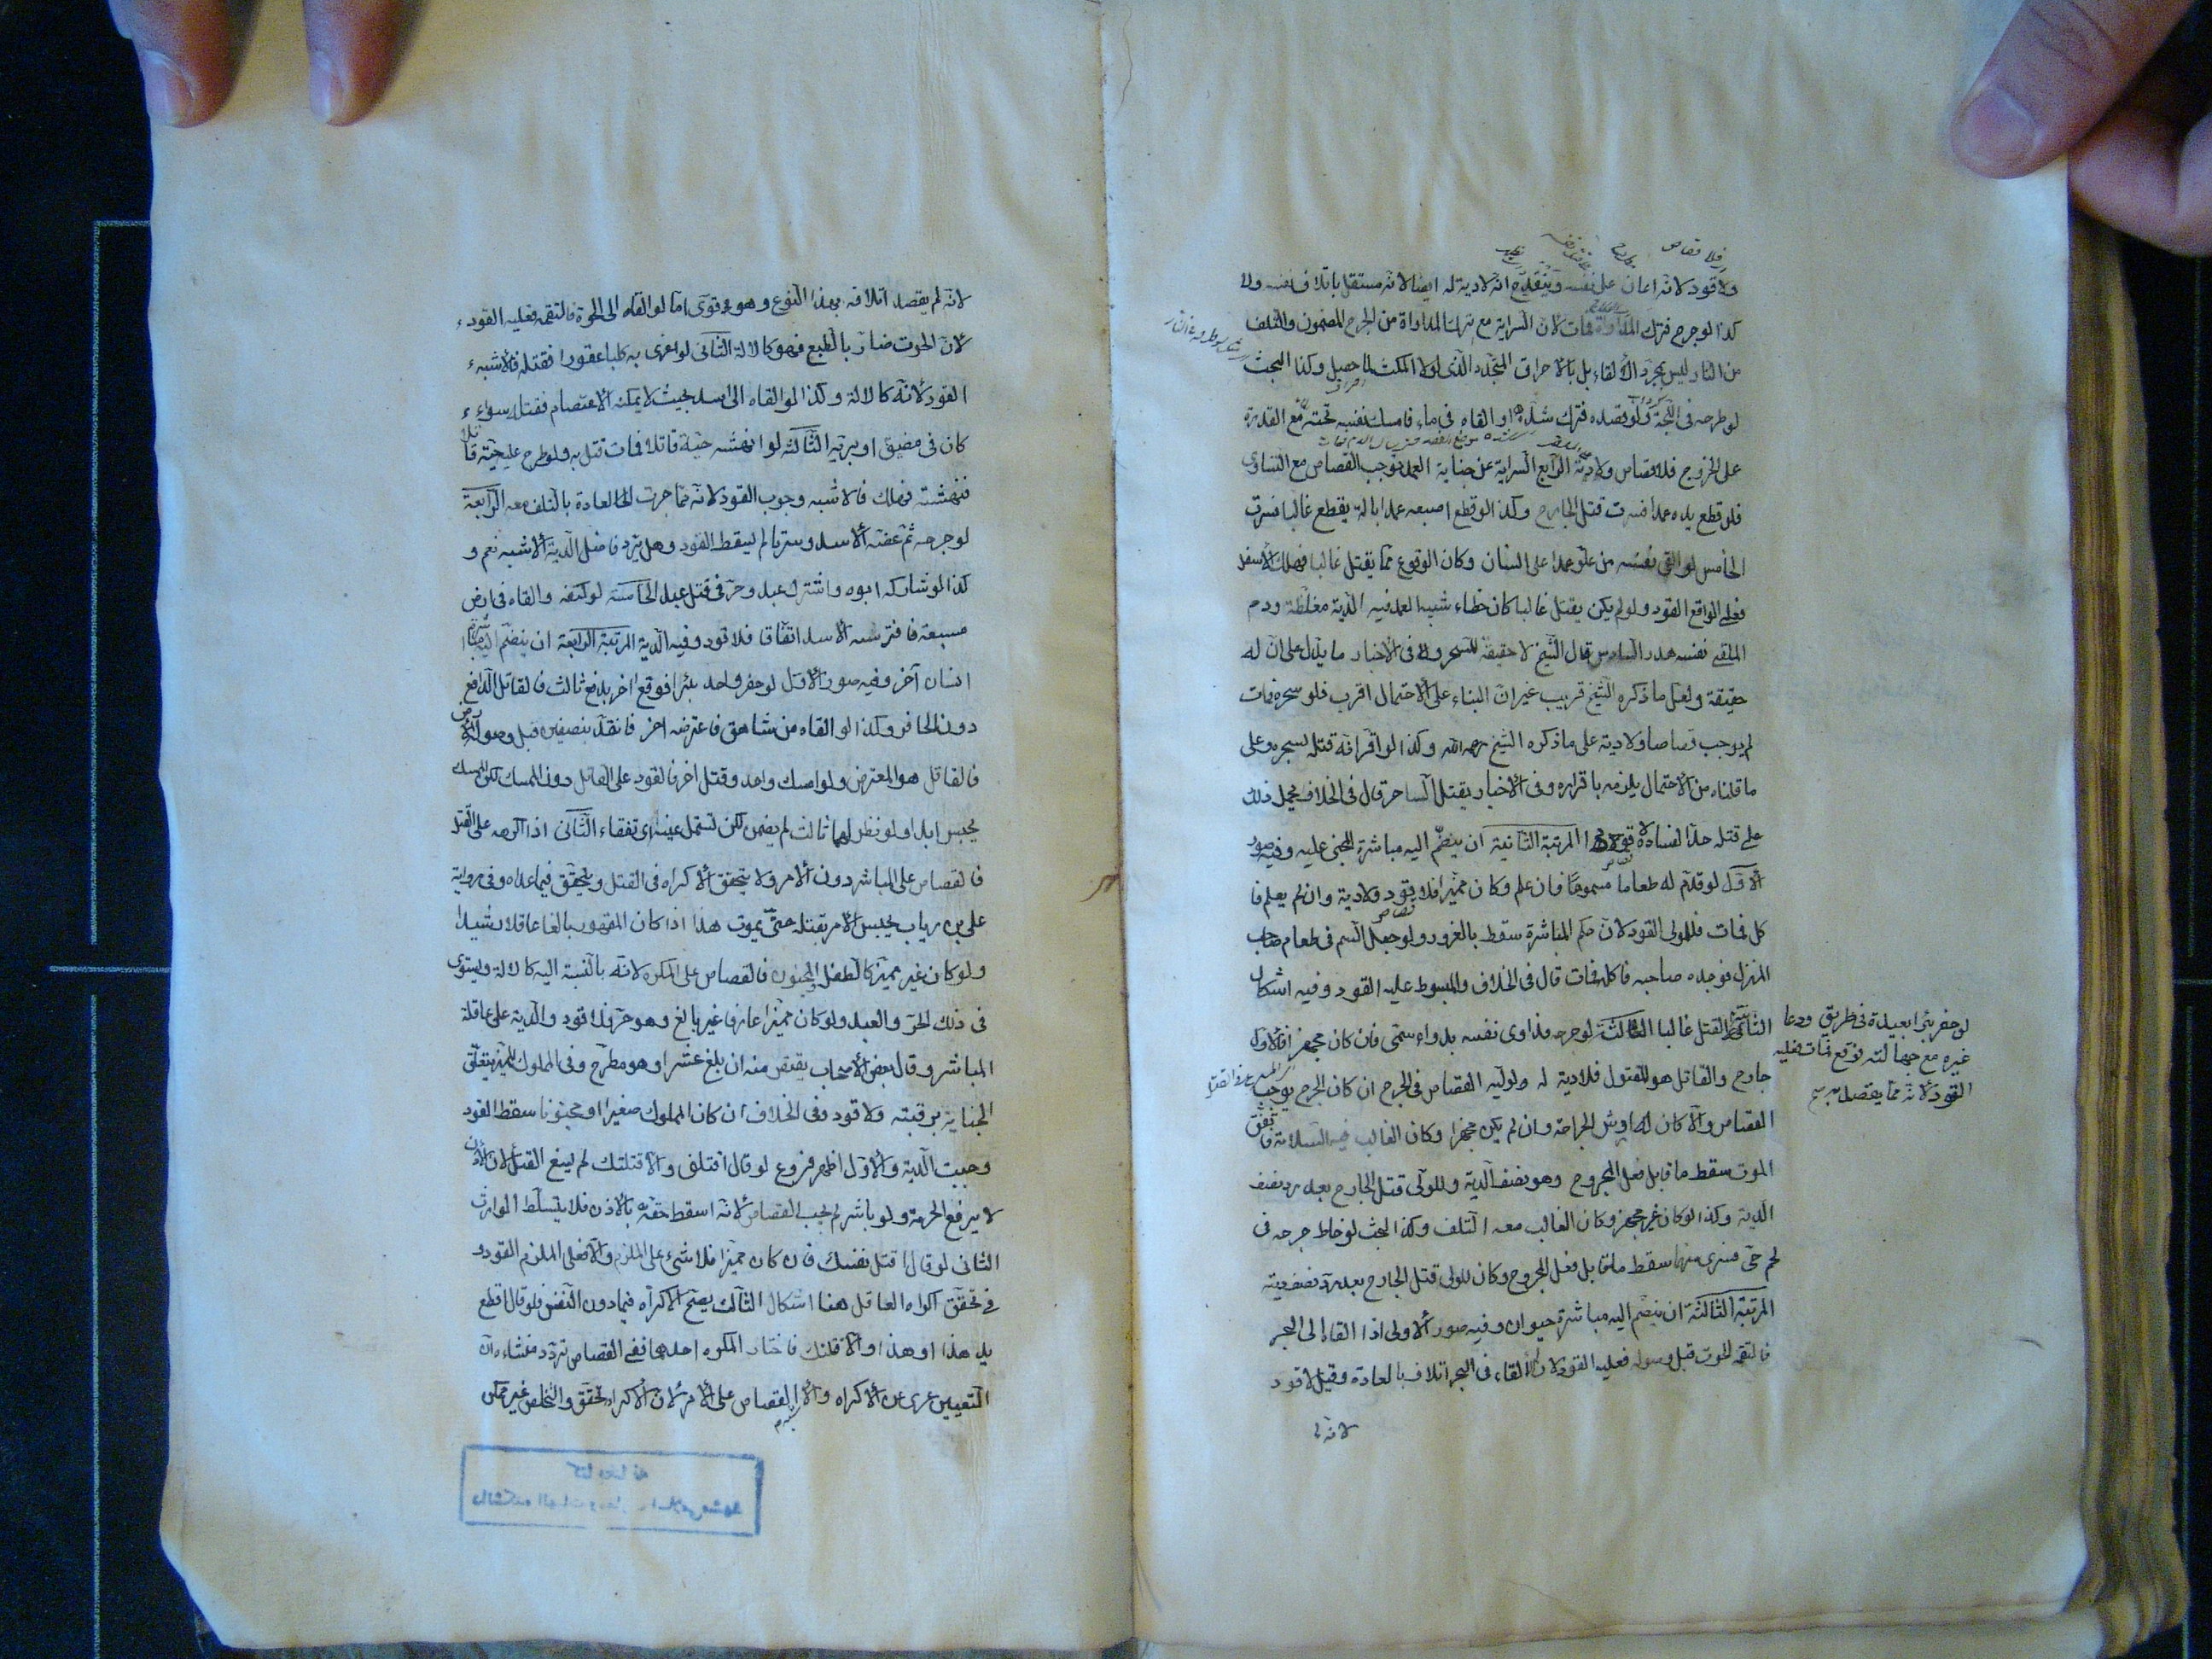 ولا قود لانه اعان على نفسه وينقدح انه لا دية له ايضا لانه مستقل باتلاف نفسه ولا
كذا لو جرح فترك المداواة فمات لان السراية مع ترك المداواة من الجرح المضمون والتلف
من النار ليس بمجرد الالقاء بل بالاحراق المتجدد الذى لولا المكث لما حصل وكذا البحث
لو طرحه فى اللجة ولو فصده فترك شده او القاه فى ماء فامسك نفسه تحته مع القدرة
على الخروج فلا قصاص ولا دية الرابع السراية عن جناية العمد توجب القصاص مع التساوى
فلو قطع يده عمدا فسرت قتل الجارح وكذا لو قطع اصبعه عمدا بالة يقطع غالبا فسرت
الخامس لو القى نفسه من علو عمدا على انسان وكان الوقوع مما يقتل غالبا فهلك الاسفل
فعلى الواقع القود ولو لم يكن يقتل غالبا كان خطاء شبيه العمد فيه الدية مغلظة ودم
الملقى نفسه هدر السادس قال الشيخ لا حقيقة للسحر وفى الاخبار ما يدل على ان له
حقيقة ولعل ما ذكره الشيخ قريب غير ان البناء على الاحتمال اقرب فلو سحره فمات
لم يوجب قصاصا ولا دية على ما ذكره الشيخ رحمه الله وكذا لو اقر انه قتله بسحره وعلى
ما قلناه من الاحتمال يلزمه باقراره وفى الاخبار يقتل الساحر قال فى الخلاف يحمل ذلك
على قتله حدا لفساده لا قودا المرتبة الثانية ان ينضم اليه مباشرة المجنى عليه وفيه صور
الاول لو قدم له طعاما مسموما فان علم وكان مميزا فلا قود ولا دية وان لم يعلم فا
كل فمات فللولى القود لان حكم المباشرة سقط بالغرور ولو جعل السم فى طعام صاحب
المنزل فوجده صاحبه فاكله فمات قال فى الخلاف والمبسوط عليه القود وفيه اشكال
لو حفر بئرا بعيدة فى طريق ودعا
غيره مع جهالته فوقع فمات فعليه
القود لانه مما يقصد به
القتل غالبا الثالثة لو جرحه فداوى نفسه بدواء سمى فان كان مجهزا فالاول
جارح والقاتل هو المقتول فلا دية له ولوليه القصاص فى الجرح ان كان الجرح يوجب
القصاص والا كان له ارش الجراحة وان لم يكن مجهزا وكان الغالب فيه السلامة فاتفق
الموت سقط ما قابل فعل المجروح وهو نصف الدية وللولى قتل الجارح بعد رد نصف
الدية وكذا لو كان غير مجهز وكان الغالب معه التلف وكذا البحث لو خاط جرحه فى
لحم حى فسرى منهما سقط ما قابل فعل المجروح وكان للولى قتل الجارح بعد رد نصف ديته
المرتبة الثالثة ان ينضم اليه مباشرة حيوان وفيه صور الاولى اذا القاه الى البحر
فالتقمه الحوت قبل وصوله فعليه القود لان القاء فى البحر اتلاف بالعادة وقيل لا قود
لانه لم
لانه لم يقصد اتلافه بهذا النوع وهو قوى اما لو القاه الى الحوت فالتقمه فعليه القود
لان الحوت ضار بالطبع فهو كالالة الثانى لو اغرى به كلبا عقورا فقتله فالاشبه
القود لانه كالالة وكذا لو القاه الى اسد بحيث لا يمكنه الاعتصام فقتله سواء
كان فى مضيق او برية الثالث لو انهشه حية قاتلا فمات قتل به ولو طرح عليه حية قاتلا
فنهشته فهلك فالاشبه وجوب القود لانه مما جرت العادة بالتلف معه الرابعة
لو جرحه ثم عضه الاسد وسريا لم يسقط القود وهل يرد فاضل الدية الاشبه نعم و
كذا لو شاركه ابوه واشترك عبد وحر فى قتل عبد الخامسة لو كتفه والقاه فى ارض
مسبعة فافترسه الاسد اتفاقا فلا قود وفيه الدية المرتبة الرابعة ان ينضم اليه مباشرة
انسان آخر وفيه صور الاول لو حفر واحد بئرا فوقع اخر بدفع ثالث فالقاتل الدافع
دون الحافر وكذا لو القاه من شاهق فاعترضه اخر فانقد بنصفين قبل وصوله الارض
فالقاتل هو المعترض ولو امسك واحد وقتل اخر فالقود على القاتل دون الممسك لكن الممسك
يحبس ابدا ولو نظر لهما ثالث لم يضمن لكن تسمل عينه اى تفقاء الثانى اذا اكرهه على القتل
فالقصاص على المباشر دون الامر ولا يتحقق الاكراه فى القتل ويتحقق فيما عداه وفى رواية
على بن رياب يحبس الامر بقتله حتى يموت هذا اذا كان المقهور بالغا عاقلا رشيدا
ولو كان غير مميز كالطفل والمجنون فالقصاص على المكره لانه بالنسبة اليه كالالة ويستوى
فى ذلك الحر والعبد ولو كان مميزا عارفا غير بالغ وهو حر فلا قود والدية على عاقلة
المباشر وقال بعض الاصحاب يقتص منه ان بلغ عشرا وهو مطرح وفى المملوك المميز يتعلق
الجناية برقبته ولا قود وفى الخلاف ان كان المملوك صغيرا او مجنونا سقط القود
وجبت الدية والاول اظهر فروع لو قال اقتلنى والا قتلتك لم يسغ القتل لان الاذن
لا يرفع الحرمة ولو باشر لم يجب القصاص لانه اسقط حقه بالاذن فلا يتسلط الوارث
الثانى لو قال اقتل نفسك فان كان مميزا فلا شىء على الملزم والا فعلى الملزم القود و
فى تحقق اكراه العاقل هنا اشكال الثالث يصح الاكراه فيما دون النفس فلو قال اقطع
يد هذا او هذا والا قتلتك فاختار المكره احدهما ففى القصاص تردد منشاءه ان
التعيين عرى عن الاكراه والاشبه القصاص على الامر لان الاكراه تحقق والتخلص غير ممكن
كتابخانه